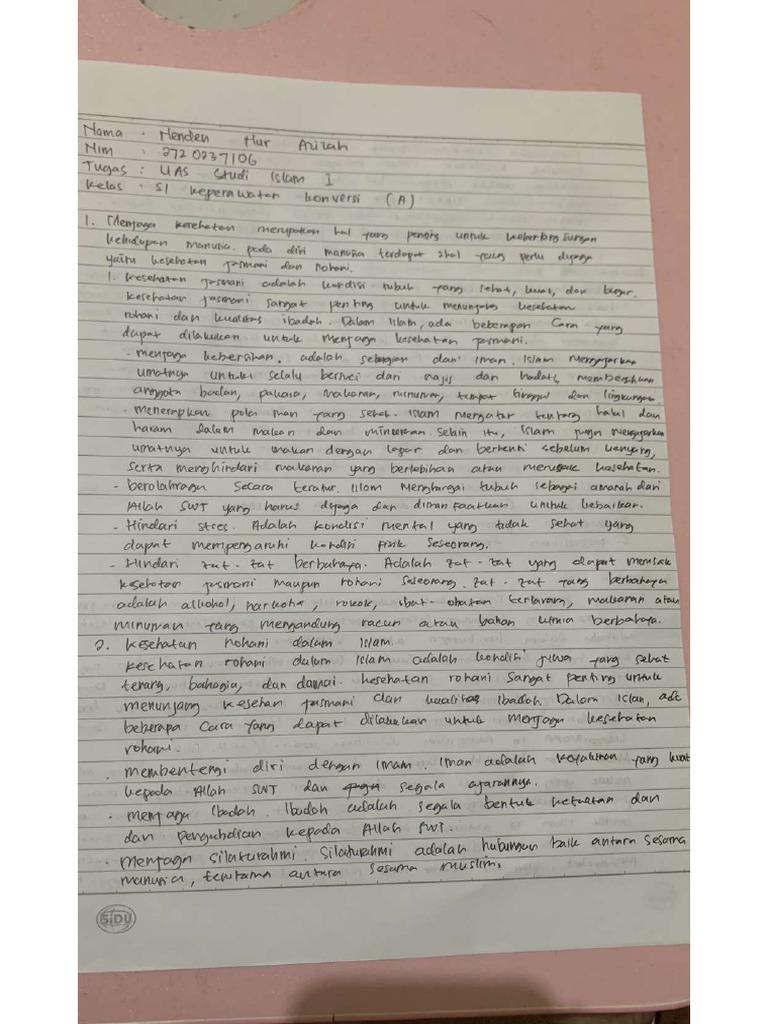 Nama : Menden Nur Azizah
Nim : 2720237106
Tugas : UAS Studi Islam I
Kelas : S1 keperawatan konversi (A)
1. Menjaga kesehatan merupakan hal yang penting untuk keberlangsungan
kehidupan manusia. pada diri manusia terdapat 2hal yang perlu dijaga
yaitu kesehatan jasmani dan rohani.
1. kesehatan jasmani adalah kondisi tubuh yang sehat, kuat, dan bugar.
kesehatan jasmani sangat penting untuk menunjang kesehatan
rohani dan kualitas ibadah. Dalam Islam, ada beberapa cara yang
dapat dilakukan untuk menjaga kesehatan jasmani.
- menjaga kebersihan. adalah sebagian dari iman. Islam mengajarkan
umatnya untuk selalu bersuci dari najis dan hadats, membersihkan
anggota badan, pakaian, makanan, minuman, tempat tinggal dan lingkungan.
- menerapkan pola man yang sehat. Islam mengatur tentang halal dan
haram dalam makan dan minuman. Selain itu, Islam juga mengajarkan
umatnya untuk makan dengan lapar dan berhenti sebelum kenyang,
serta menghindari makanan yang berlebihan atau merusak kesehatan.
- berolahraga secara teratur. Islam menghargai tubuh sebagai amanah dari
Allah SWT yang harus dijaga dan dimanfaatkan untuk kebaikan.
- Hindari stres. Adalah kondisi mental yang tidak sehat yang
dapat mempengaruhi kondisi fisik seseorang.
- Hindari zat-zat berbahaya. Adalah zat-zat yang dapat merusak
kesehatan jasmani maupun rohani seseorang. zat-zat yang berbahaya
adalah alkohol, narkoba, rokok, obat-obatan terlarang, makanan atau
minuman yang mengandung racun atau bahan kimia berbahaya.
2. kesehatan rohani dalam Islam.
kesehatan rohani dalam Islam adalah kondisi jiwa yang sehat
tenang, bahagia, dan damai. kesehatan rohani sangat penting untuk
menunjang kesehan jasmani dan kualitas ibadah. Dalam Islan, ada
beberapa cara yang dapat dilakukan untuk menjaga kesehatan
rohani.
. membentengi diri dengan imam. Iman adalah keyakinan yang kuat
kepada Allah SWT dan segala ajarannya.
. menjaga Ibadah. Ibadah adalah segala bentuk ketaatan dan
dan pengabdian kepada Allah SWT.
. menjaga silaturahmi. Silaturahmi adalah hubungan baik antara sesama
manusia, terutama antara sesama muslim.
SiDU